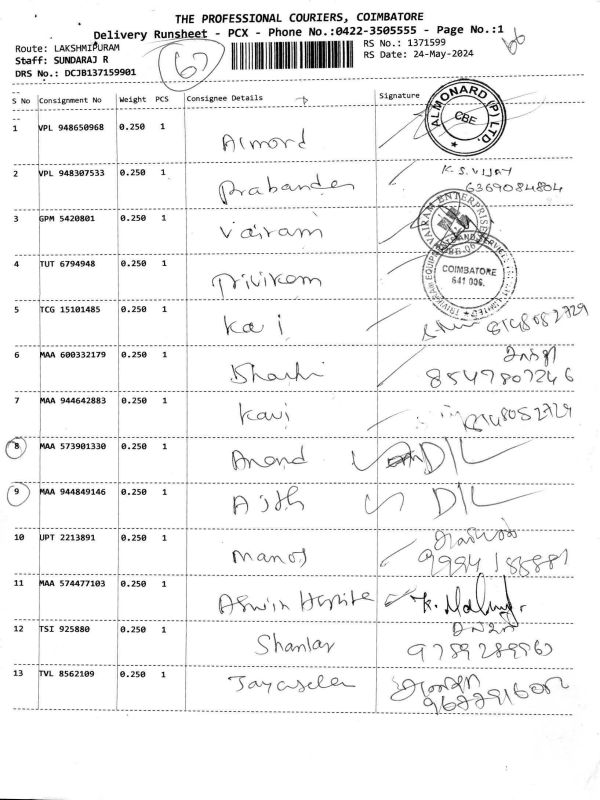 THE PROFESSIONAL COURIERS, COIMBATORE
Delivery Runsheet - PCX - Phone No.:0422-3505555 - Page No.:1
Route: LAKSHMIPURAM
RS No.: 1371599
Staff: SUNDARAJ R
RS Date: 24-May-2024
DRS No.: DCJB137159901
67
66
S No Consignment No Weight PCS Consignee Details Signature
ALMONARD (P) LTD.
CBE
1 VPL 948650968 0.250 1 Almord
2 VPL 948307533 0.250 1 Prabandes K.S.VIJAY
6369084804
3 GPM 5420801 0.250 1 Vairam
VAIRAM ENTERPRISES
4 TUT 6794948 0.250 1 Trivikam
COIMBATORE
641 006.
5 TCG 15101485 0.250 1 Kavi 8148052729
6 MAA 600332179 0.250 1 Bharthi
8547807246
7 MAA 944642883 0.250 1 Kavi 8148052729
8 MAA 573901330 0.250 1 Anand D/L
9 MAA 944849146 0.250 1 Ajith D/L
10 UPT 2213891 0.250 1 Manoj
11 MAA 574477103 0.250 1 Aswin
12 TSI 925880 0.250 1 Shankar
13 TVL 8562109 0.250 1